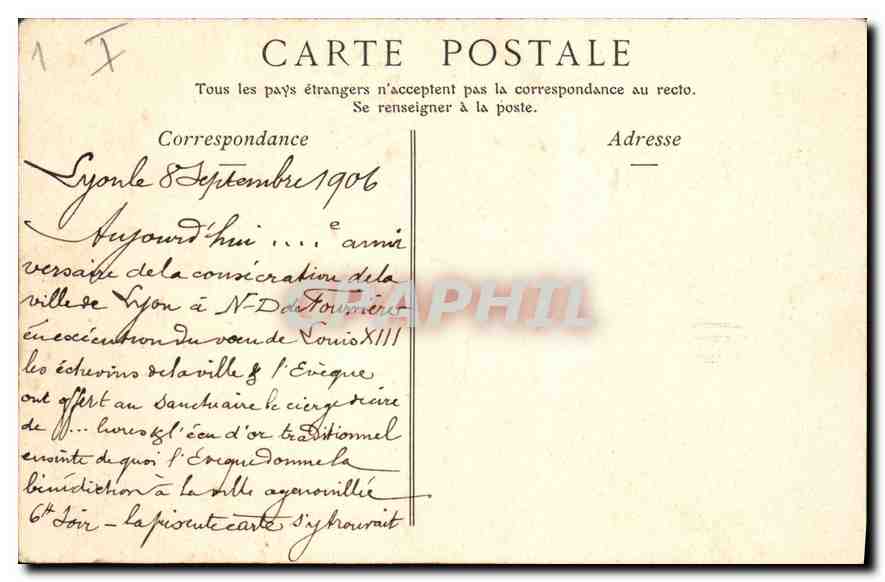 1 X
CARTE POSTALE
Tous les pays étrangers n'acceptent pas la correspondance au recto.
Se renseigner à la poste.
Correspondance
Adresse
Lyon le 8 Septembre 1906
Aujourd'hui ....e anni
versaire de la consécration de la
ville de Lyon à N-D de Fourvière
CARAPHIL
en exécution du vœu de Louis XIII
les échevins de la ville & l'Evêque
ont offert au sanctuaire le cierge de cire
de .... livres & l'écu d'or traditionnel
ensuite de quoi l'Evêque donne la
bénédiction à la ville agenouillée
6h soir - la présente carte s'y trouvait